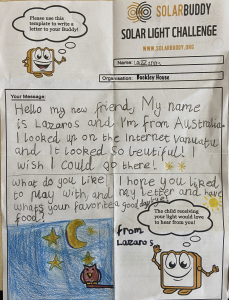 Please use this
template to write a
letter to your Buddy!
SOLARBUDDY
SOLAR LIGHT CHALLENGE
WWW.SOLARBUDDY.ORG
Name: Lazaros
Organisation: Buckley House
Your Message:
Hello my new friend, My name
is Lazaros and I'm from Australia
I looked up on the Internet Vanuatu
and it looked so beutiful! I
wish I could go there!
What do you like
to play with, and
whats your favorite
food?
I hope you liked
my letter and have
a good day/bye!
from
Lazaros
The child receiving
your light would love
to hear from you!